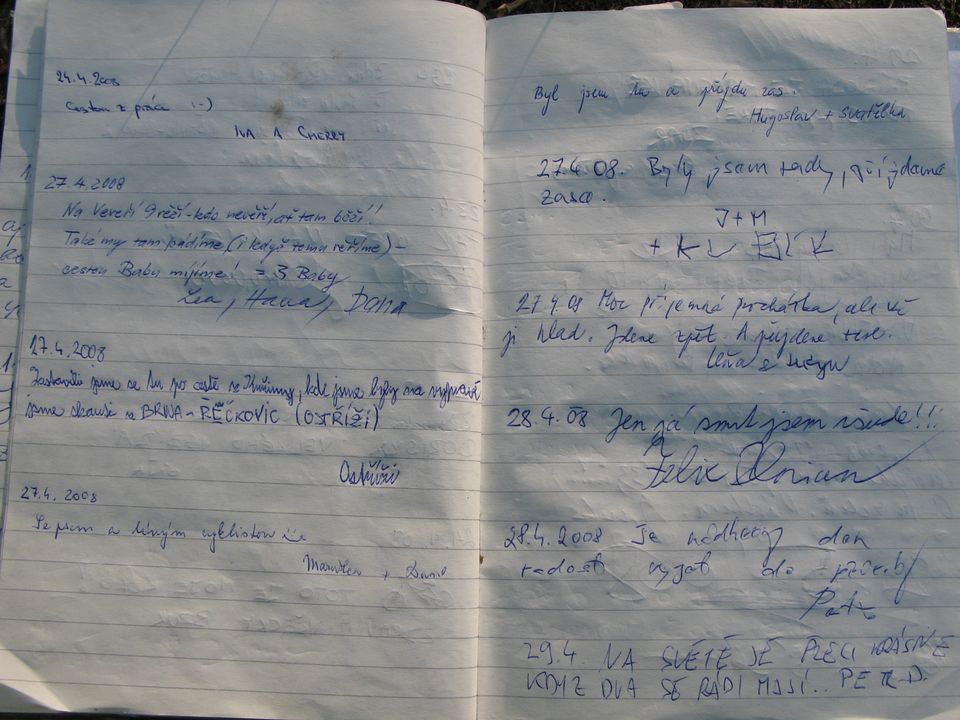 24.4.2008
Cestou z práce :-)
IVA A CHERRY
27.4.2008
Na Veveří 9 řeží - kdo nevěří, ať tam běží!!
Také my tam pádíme, (i když tomu věříme) -
cestou Babu míjíme! = 3 Baby
Lea, Hana, Dana
27.4.2008
Zastavili jsme se tu po cestě z Kuřimy, kde jsme byly na výpravě
jsme skauti z BRNA - ŘEČKOVIC (OSTŘÍŽI)
Ostříži
27.4. 2008
Se psem a líným cyklistou
+ Daniel
Byl jsem tu a přijdu zas.
Hugoslav + Světluška
27.4.08. Byly jsem tady, přijdeme
zase.
J+M
27.4.08 Moc příjemná procházka, ale už
je hlad. Jdeme zpět. A přijdeme zase.
28.4.08 Jen já smrt jsem všude!!!
Felix
28.4. 2008 Je nádherný den
radost vyjet do přírody
29.4. NA SVĚTĚ JE PŘECI KRÁSNĚ
KDYŽ DVA SE RÁDI MAJÍ.. PETR D.